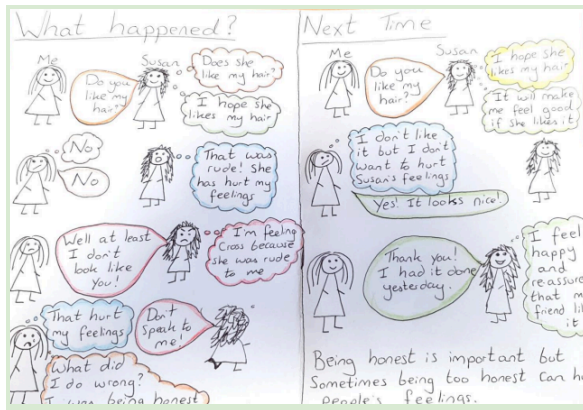 What happened?
Me
Susan
Do you
like my
hair?
Does she
like my hair?
I hope she
likes my hair
No
No
That was
rude! She
has hurt my
feelings
Well at least
I don't
look like
you!
I'm feeling
Cross because
she was rude
to me
That hurt
my feelings
Don't
Speak to
me!
What did
I do wrong?
I was being honest
Next Time
Me
Susan
Do you
like my
hair?
I hope she
likes my hair
It will make
me feel good
if she likes it
I don't like
it but I don't
want to hurt
Susan's feelings
Yes! It looks nice!
Thank you!
I had it done
yesterday.
I feel
happy
and
reassure
that m
friend lik
it
Being honest is important but
Sometimes being too honest can h
people's feelings.